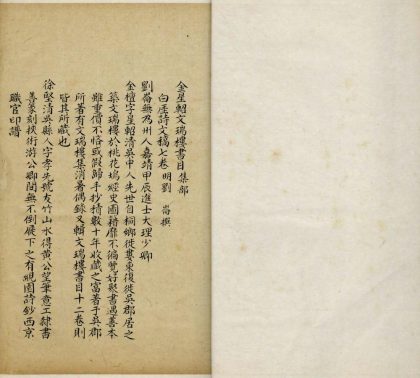 金星軺文瑞樓書目集部
白厓詩文稿七卷明劉崙撰
劉崙無為州人嘉靖甲辰進士大理少卿
金檀字星軺清吳中人先世自桐鄉徙婁東復徙吳郡居之
築文瑞樓於桃花塢經史圖籍靡不徧覽好聚書遇善本
雖重價不恡或假歸手抄積數十年收藏之富著于吳郡
所著有文瑞樓集消暑偶錄又輯文瑞樓書目十二卷則
皆其所藏也
徐堅清吳縣人字孝先號友竹山水得黃公望筆意工隸書
善篆刻挾術游公卿間無不倒屣下之有緄園詩鈔西京
職官印譜